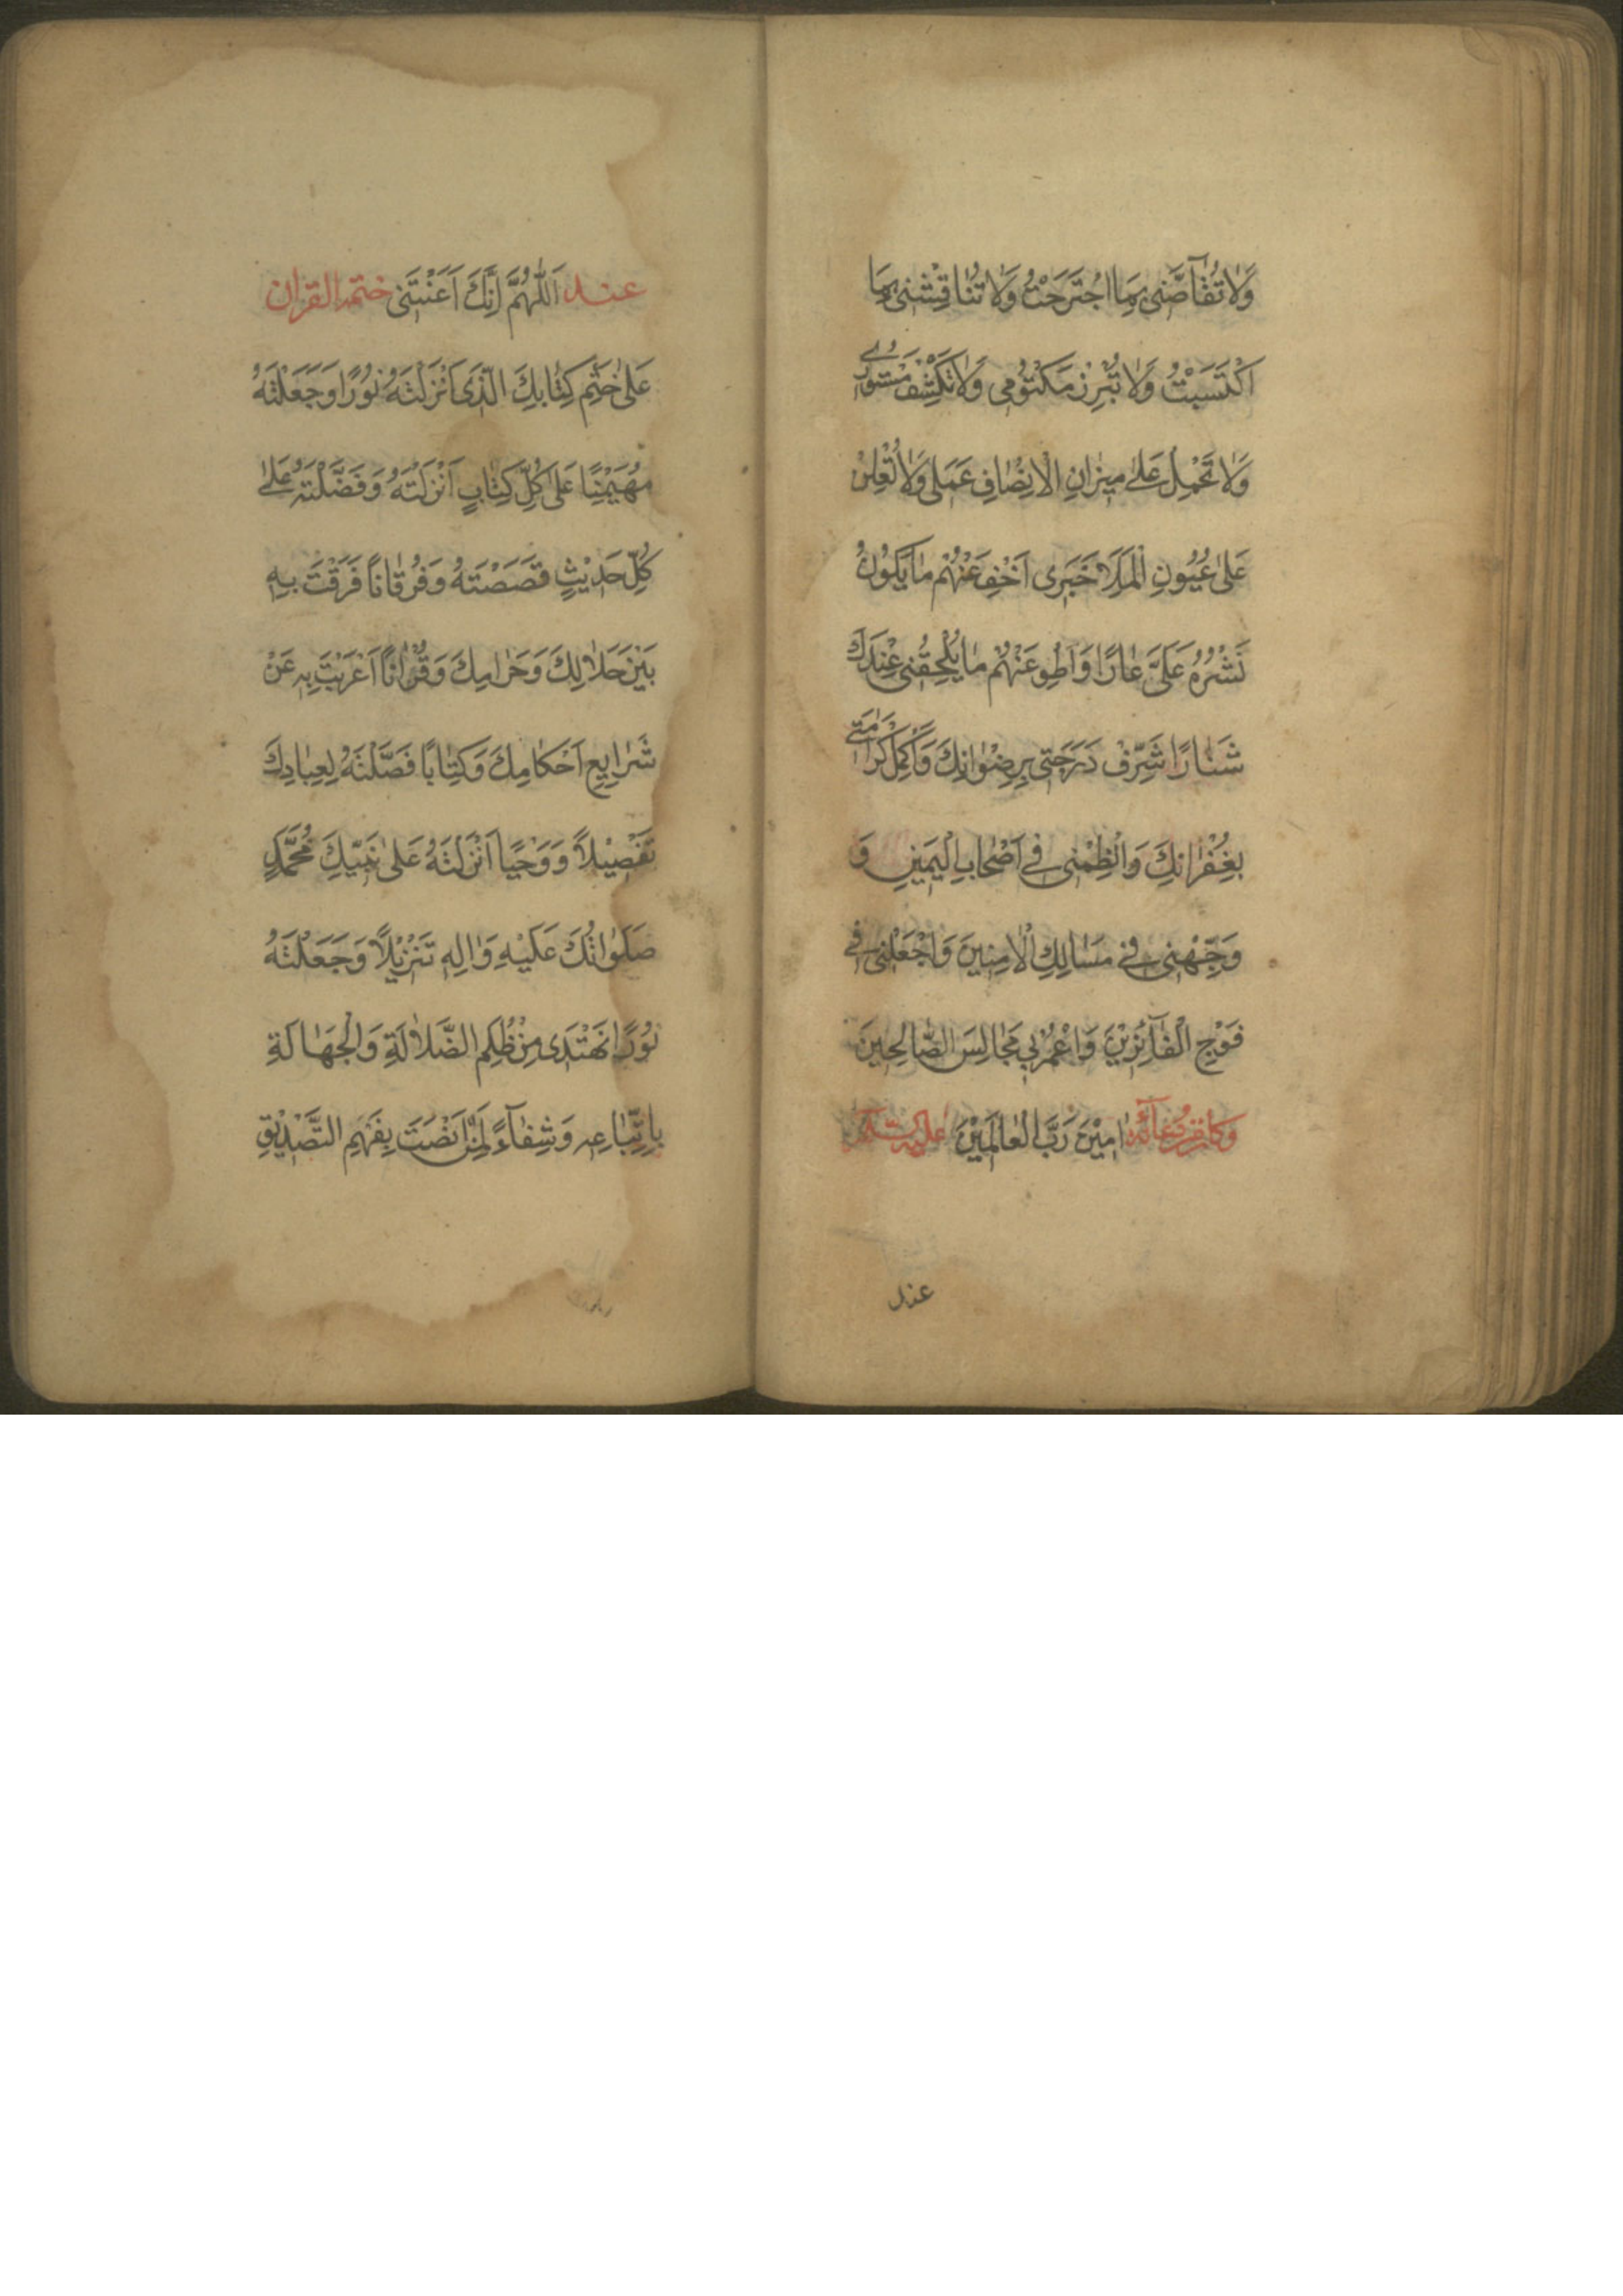 وَلَا تُقَآصَّنِى بِمَا اجْتَرَحْتُ وَلَا تُنَاقِشْنِى بِمَا
اكْتَسَبْتُ وَلَا تُبْرِزْ مَكْتُومِى وَلَا تَكْشِفْ مَسْتُورِى
وَلَا تَحْمِلْ عَلَى مِيزَانِ الْاِنْصَافِ عَمَلِى وَلَا تُعْلِنْ
عَلَى عُيُونِ الْمَلَاَ خَبَرِى اَخْفِ عَنْهُمْ مَا يَكُونُ
نَشْرُهُ عَلَىَّ عَارًا وَاَطْوِ عَنْهُمْ مَا يُلْحِقُنِى عِنْدَكَ
شَنَارًا شَرِّفْ دَرَجَتِى بِرِضْوَانِكَ وَاَكْمِلْ كَرَامَتِى
بِغُفْرَانِكَ وَانْظِمْنِى فِى اَصْحَابِ الْيَمِينِ وَ
وَجِّهْنِى فِى مَسَالِكِ الْاٰمِنِينَ وَاجْعَلْنِى فِى
فَوْجِ الْفَآئِزِيْنَ وَاعْمُرْ بِى مَجَالِسَ الصَّالِحِينَ
وكان من دعآئه اٰمِيْنَ رَبَّ الْعَالَمِيْنَ عليه السلام
عند
عند اَللّٰهُمَّ اِنَّكَ اَعَنْتَنِى ختمه القران
عَلَى خَتْمِ كِتَابِكَ الَّذِى اَنْزَلْتَهُ نُوْرًا وَجَعَلْتَهُ
مُهَيْمِنًا عَلَى كُلِّ كِتَابٍ اَنْزَلْتَهُ وَفَضَّلْتَهُ عَلَى
كُلِّ حَدِيْثٍ قَصَصْتَهُ وَفُرْقَانًا فَرَقْتَ بِهِ
بَيْنَ حَلَالِكَ وَحَرَامِكَ وَقُرْاٰنًا اَعْرَبْتَ بِهِ عَنْ
شَرَايِعِ اَحْكَامِكَ وَكِتَابًا فَصَّلْتَهُ لِعِبَادِكَ
تَفْصِيْلًا وَوَحْيًا اَنْزَلْتَهُ عَلَى نَبِيِّكَ مُحَمَّدٍ
صَلَوَاتُكَ عَلَيْهِ وَاٰلِهِ تَنْزِيْلًا وَجَعَلْتَهُ
نُوْرًا نَهْتَدِى مِنْ ظُلَمِ الضَّلَالَةِ وَالْجَهَالَةِ
بِاتِّبَاعِهِ وَشِفَآءً لِمَنْ اَنْصَتَ بِفَهْمِ التَّصْدِيْقِ